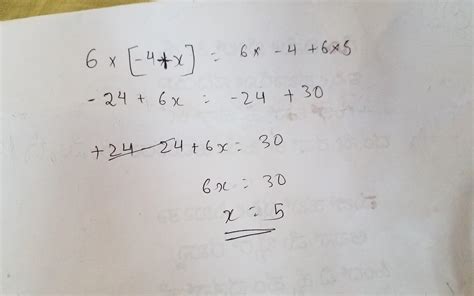 6 × [-4+x] = 6× -4 +6×5
-24 + 6x = -24 +30
+24 -24 +6x = 30
6x = 30
x = 5